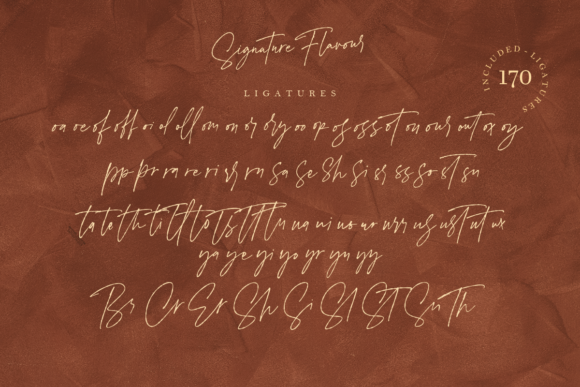 Signature Flavour
INCLUDED - LIGATURES
170
LIGATURES
oa oe of off oi ol oll om on or ory oo op os oss ot on our out ox oy
pp pr ra re ri rr rn Sa Se Sh Si sr ss so sT su
ta te th ti tl to ts tt
ua ui uo ur urr us ust ut ux
ya ye yi yo yr yu yy
Br Cr Er Sh Si Sl ST Su Th